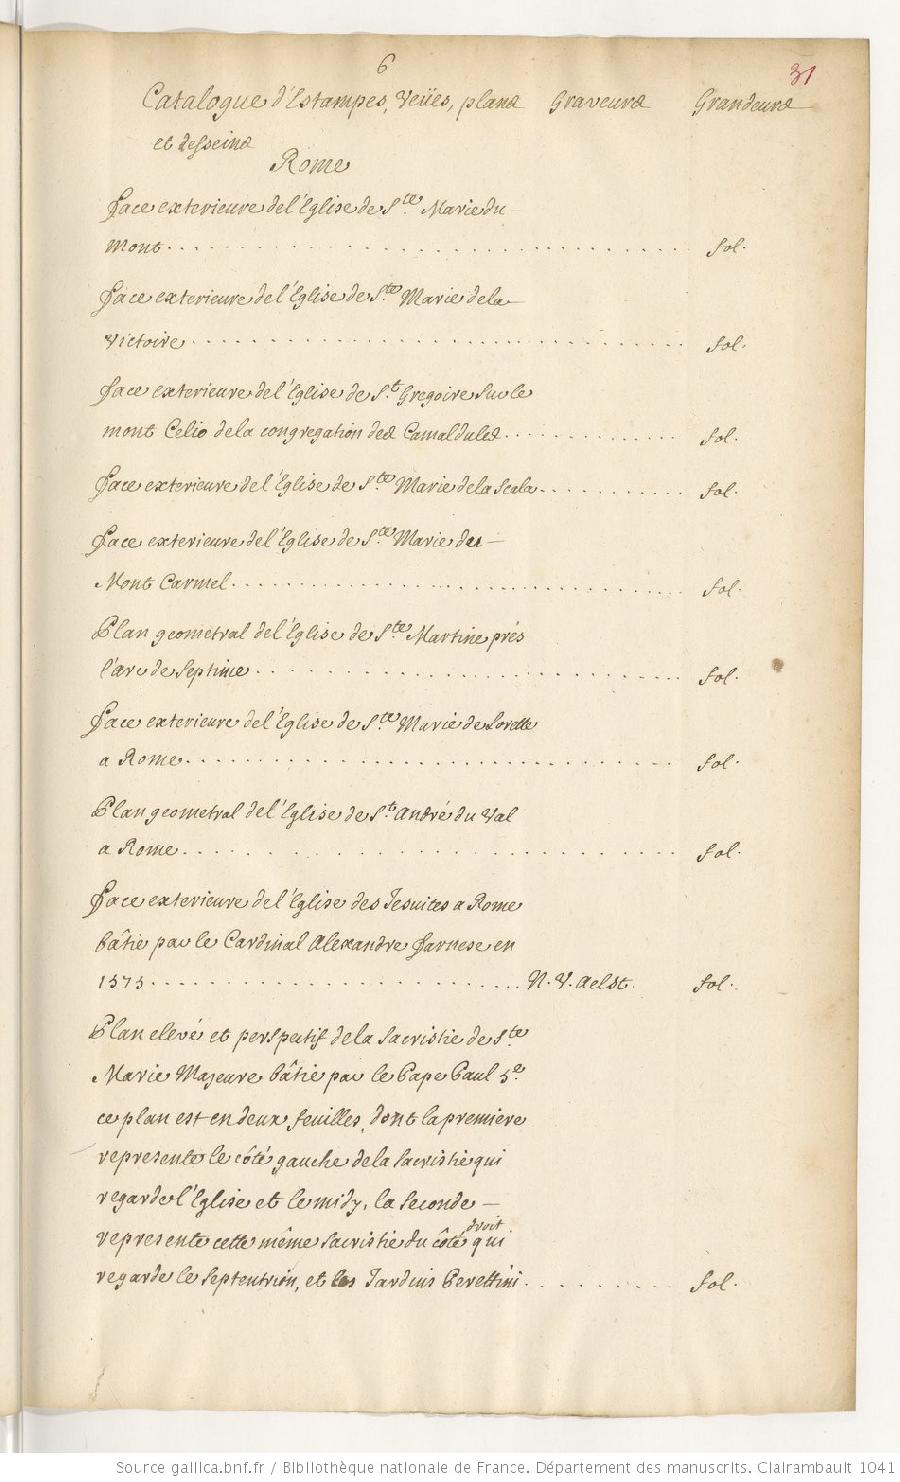 6
31
Catalogue d'Estampes, Veües, plans Graveurs Grandeurs
et desseins
Rome
Face exterieure de l'Eglise de Ste. Marie du
Mont. . . . . . . . . . . . . . . . . . . . . . . . . . . . fol.
Face exterieure de l'Eglise de Ste. Marie de la
Victoire . . . . . . . . . . . . . . . . . . . . . . . . . . fol.
Face exterieure de l'Eglise de St. Gregoire sur le
mont Celio de la congregation des Camaldules . . . . . . . . . . fol.
Face exterieure de l'Eglise de Ste. Marie de la Scala . . . . . . . . fol.
Face exterieure de l'Eglise de Ste. Marie du —
Mont Carmel . . . . . . . . . . . . . . . . . . . . . . . . fol.
Plan geometral de l'Eglise de Ste. Martine prés
l'arc de Septime . . . . . . . . . . . . . . . . . . . . . . fol.
Face exterieure de l'Eglise de Ste. Marie de Lorette
a Rome . . . . . . . . . . . . . . . . . . . . . . . . . . fol.
Plan geometral de l'Eglise de St. André du Val
a Rome . . . . . . . . . . . . . . . . . . . . . . . . . . fol.
Face exterieure de l'Eglise des Jesuites a Rome
bâtie par le Cardinal Alexandre Farnese en
1575 . . . . . . . . . . . . . . . . . . . . N. V. Aelst. fol.
Plan elevé et perspectif de la Sacristie de Ste
Marie Majeure bâtie par le Pape Paul 5e
ce plan est en deux feuilles, dont la premiere
represente le côté gauche de la Sacristie qui
regarde l'Eglise et le midy, la seconde —
represente cette même sacristie du côté droit qui
regarde le Septentrion, et les Jardins Perettini . . . . . . . . . fol.
Source gallica.bnf.fr / Bibliothèque nationale de France. Département des manuscrits. Clairambault 1041